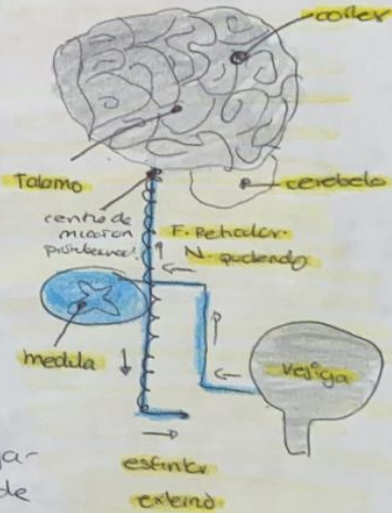 cortex
Talamo
cerebelo
centro de
miccion
protuberancial
N. pudendo
medula
vejiga
esfinter
externo
de